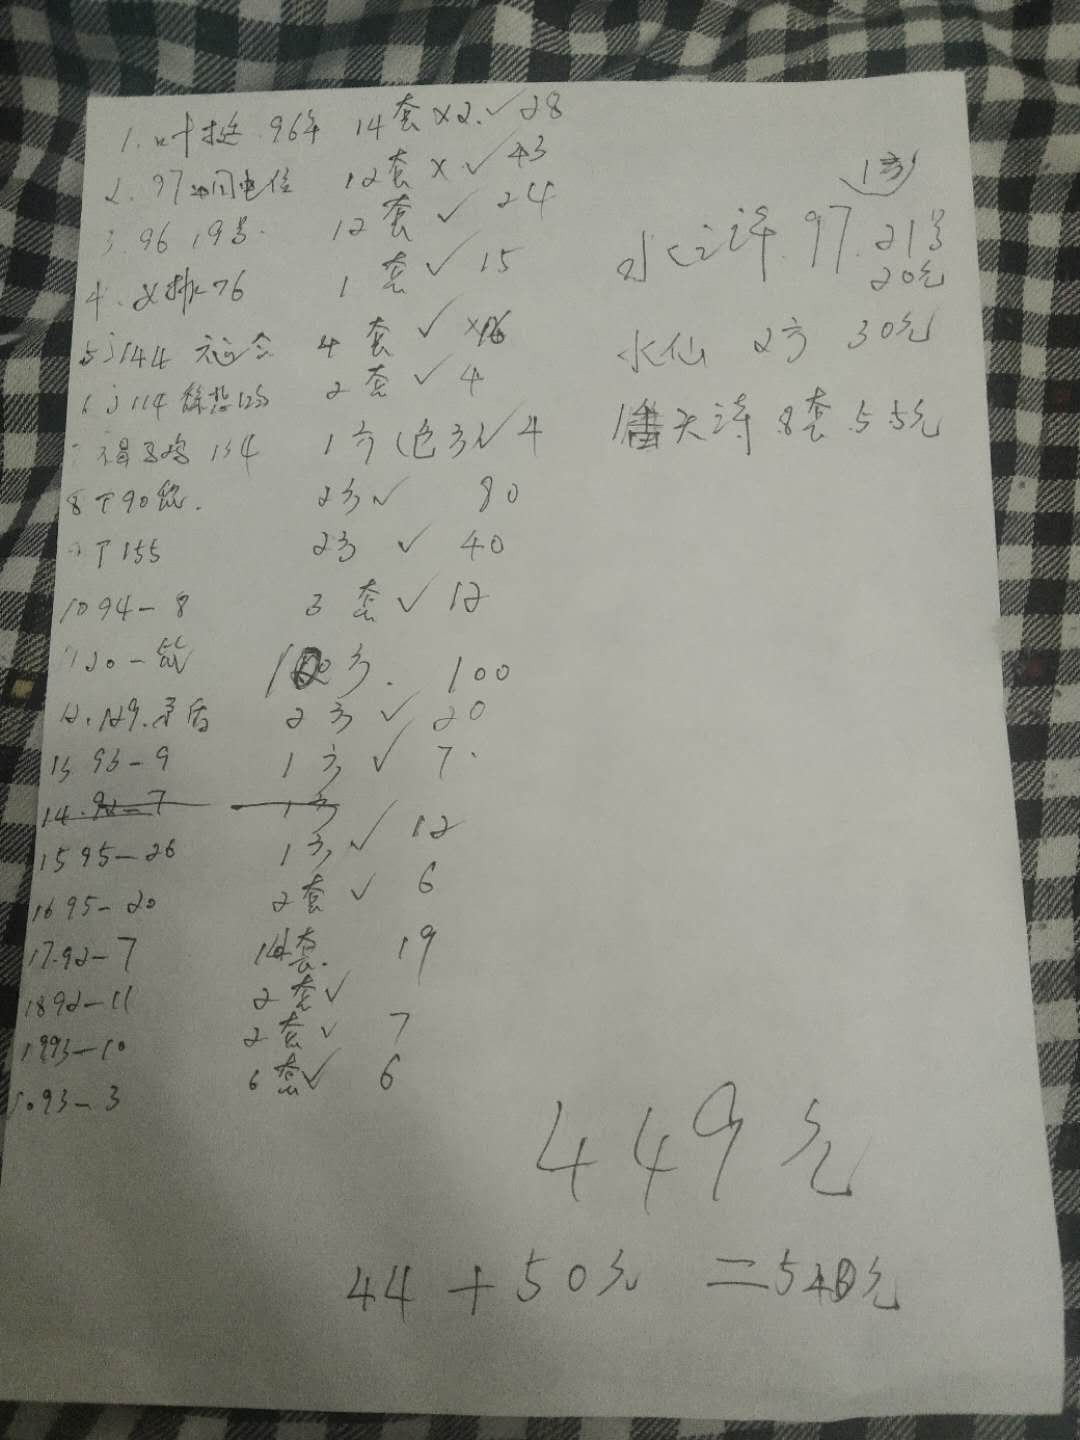 1.叶挺.96年 14套×2.✓28
2.97中国电信 12套×✓43
3.96 19号. 12套✓24
4.女排76 1套✓15
5 J144 4套✓×16
J114 2套✓4
1方(色方)✓4
8 T90 2方✓ 80
T155 2方✓ 40
10 94-8 3套✓12
100方. 100
12.129.矛盾 2方✓20
13 93-9 1方✓ 7.
14.92-7 1方
15 95-26 1方✓12
16 95-20 2套✓ 6
17.92-7 14套. 19
18 92-11 2套✓
19 93-10 2套✓ 7
93-3 6套✓ 6
1方
水浒.97.21号
20元
水仙 2方 30元
潘天涛 8套 55元
449元
44+50元=540元